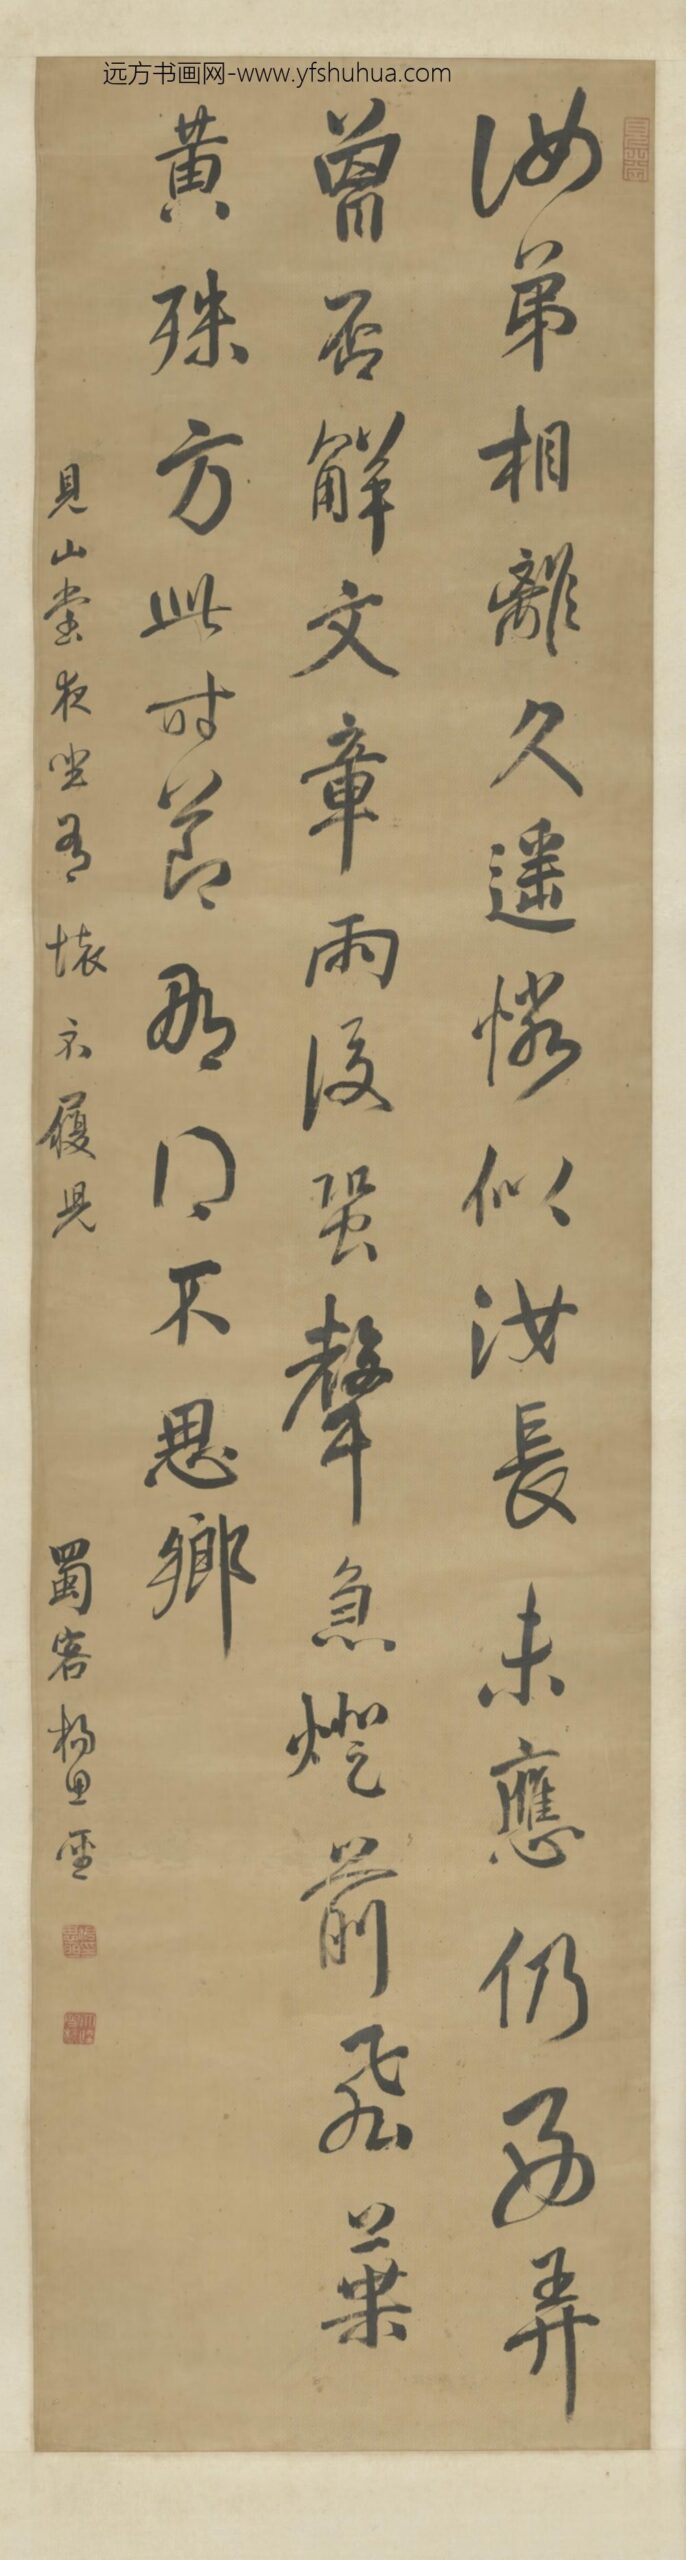 远方书画网-www.yfshuhua.com
汝弟相離久遥憐似汝長未應仍弄
曾否解文章雨後蛩聲急燈前飛葉
黄殊方此時節那得不思鄉
見山堂夜坐有懷示履兒
蜀客楊思聖